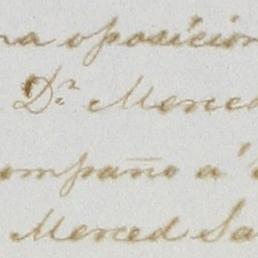 ra oposicion
Dn. Merced
ompaño a
Merced Sa